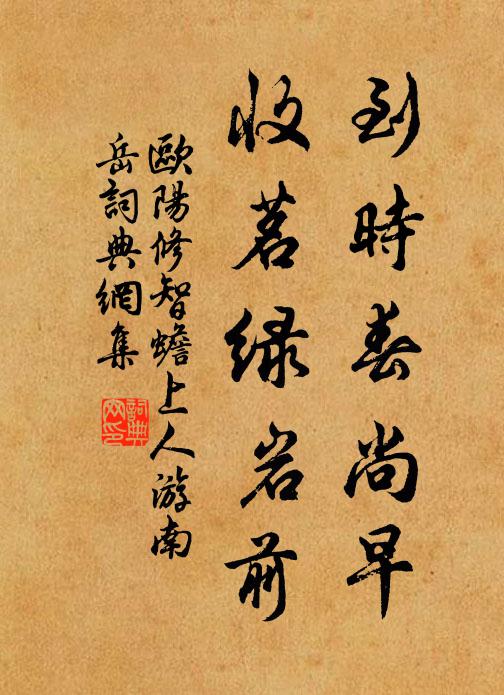 到時春尚早
收茗緑岩前
歐陽修智蟾上人游南
岳詞典網集
詞典
网印